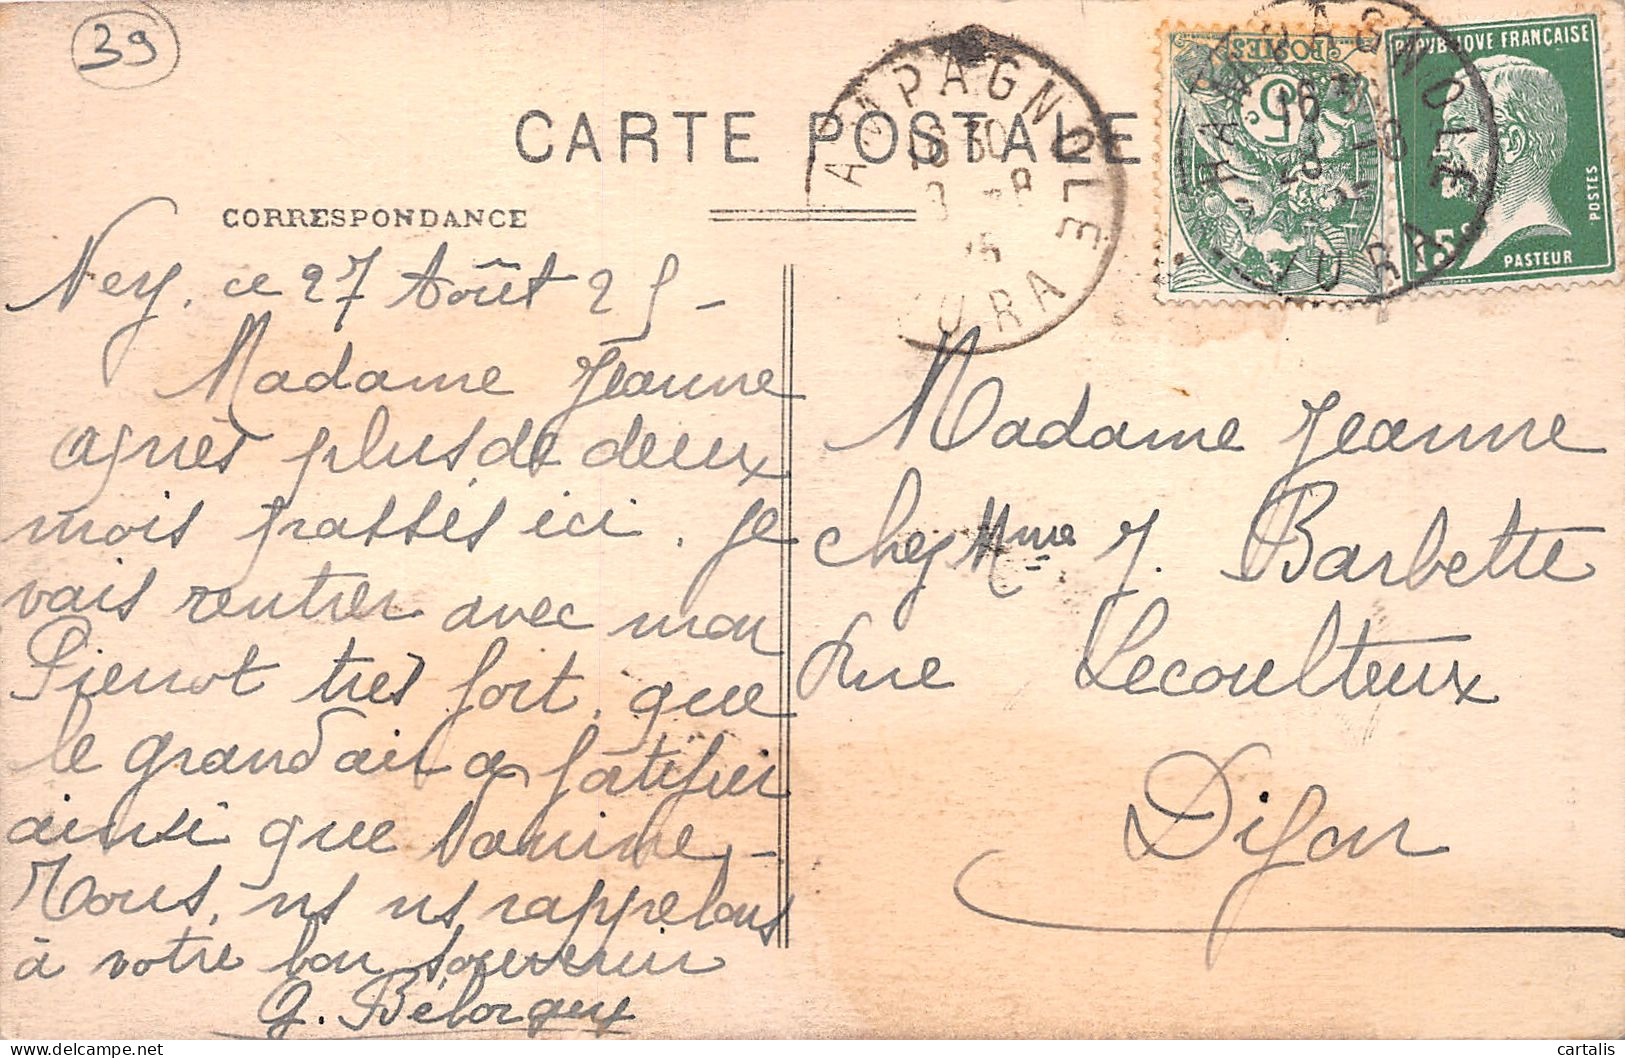 39
CARTE POSTALE
CORRESPONDANCE
Ney, ce 27 Août 25 -
Madame Jeanne
après plus de deux
mois passés ici, je
vais rentrer avec mon
Pierrot très fort, que
le grand air a fortifier
ainsi que
Tous, ns ns rappelons
à votre bon souvenir
G. Bélorgey
CHAMPAGNOLE
JURA
POSTES
5
CHAMPAGNOLE
JURA
REPUBLIQUE FRANÇAISE
POSTES
15c
PASTEUR
Madame Jeanne
chez Mme J. Barbette
Rue Lecoulteux
Dijon
cartalis